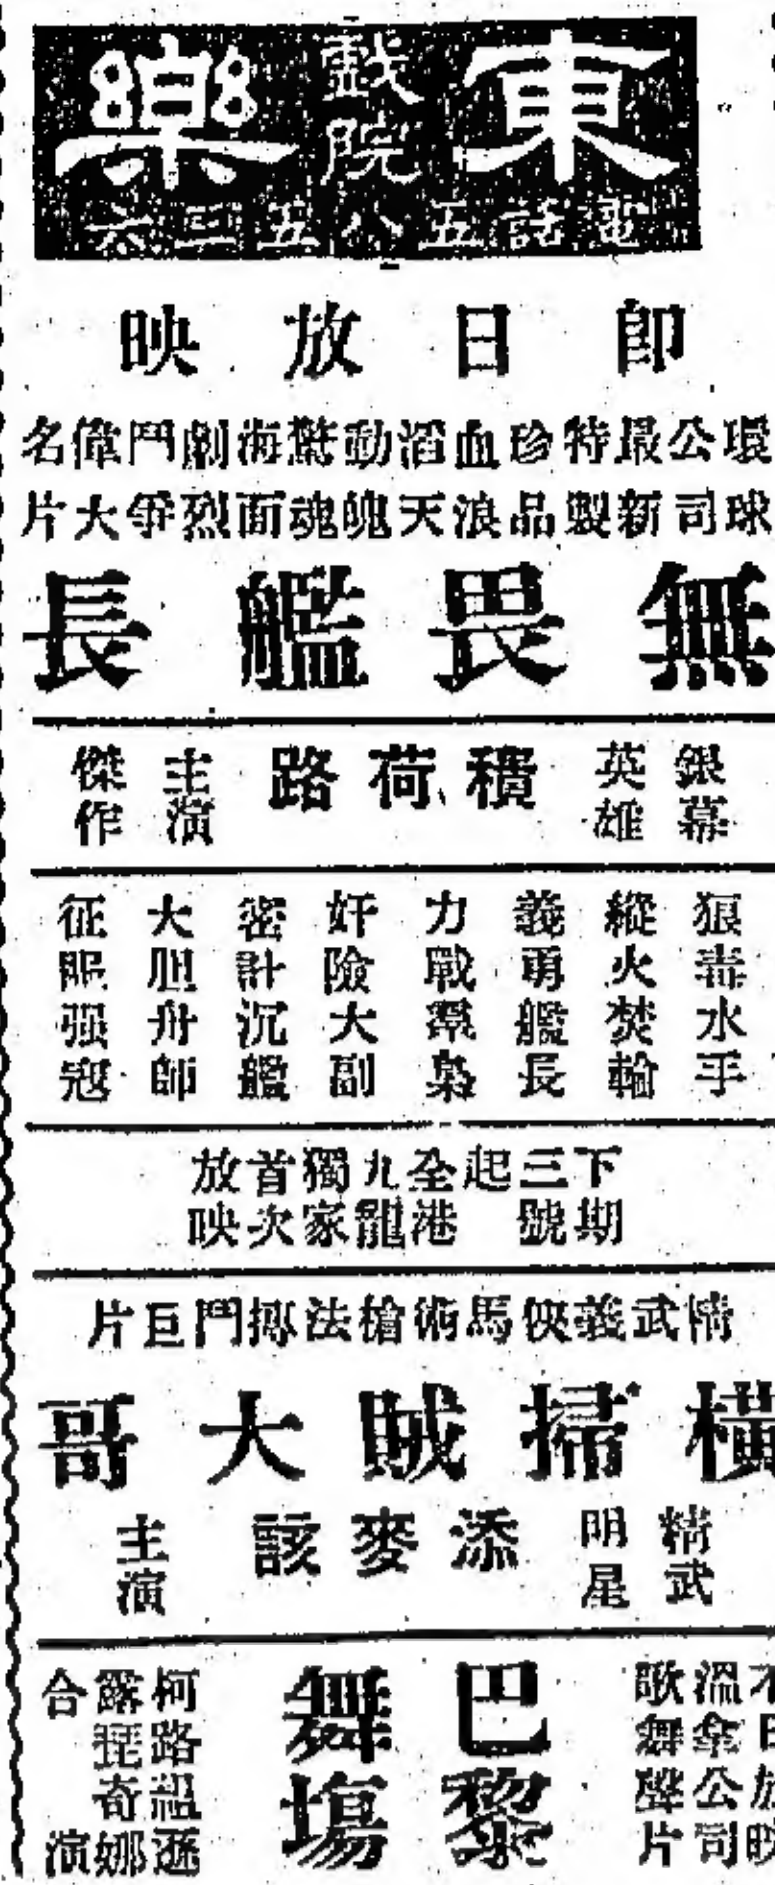 東樂戲院
電話五八五三六
即日放映
環球公司最新特製珍品血浪滔天動魄驚魂海面劇烈鬥爭偉大名片
無畏艦長
銀幕英雄
積荷路
主演傑作
狼毒水手
縱火焚輪
義勇艦長
力戰羣梟
奸險大副
密計沉艦
大胆舟師
征服强寇
下期三號起全港九龍獨家首次放映
情武義俠馬術槍法搏鬥巨片
橫掃賊大哥
精武明星
添麥該
主演
不日放映
溫拿公司
歌舞聲片
巴黎舞場
柯路縕遜
露琵奇娜
合演